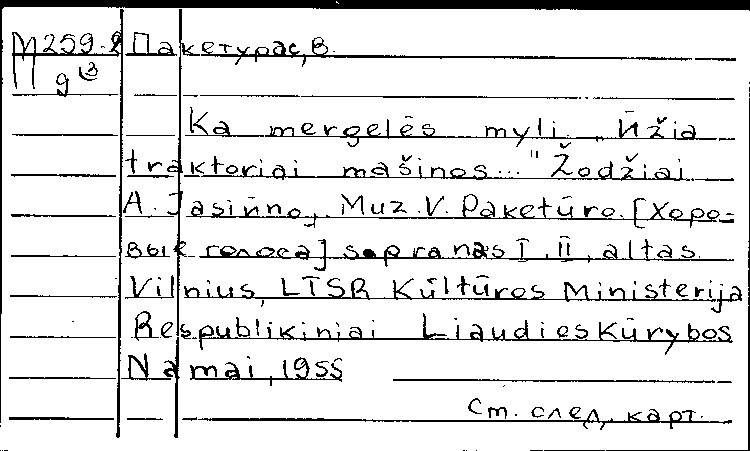 М259.2 Пакетурас, В.
9③
Ka mergelės myli „Ūžia
traktoriai mašinos..." Žodžiai
A. Jasiūno, Muz. V. Paketūro. [Хоро-
вые голоса] sopranas I, II, altas.
Vilnius, LTSR Kūltūros Ministerija
Respublikiniai Liaudies Kūrybos
Namai, 1955
См. след. карт.